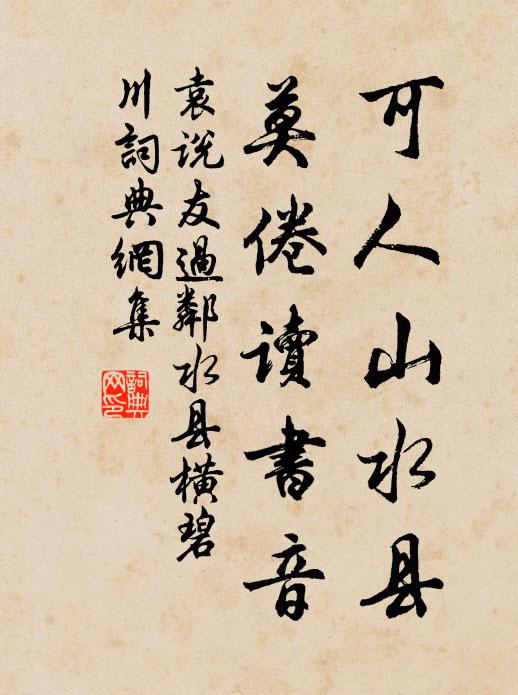 可人山水县
莫倦读書音
袁说友過鄰水县横碧
川詞典網集
詞典網印